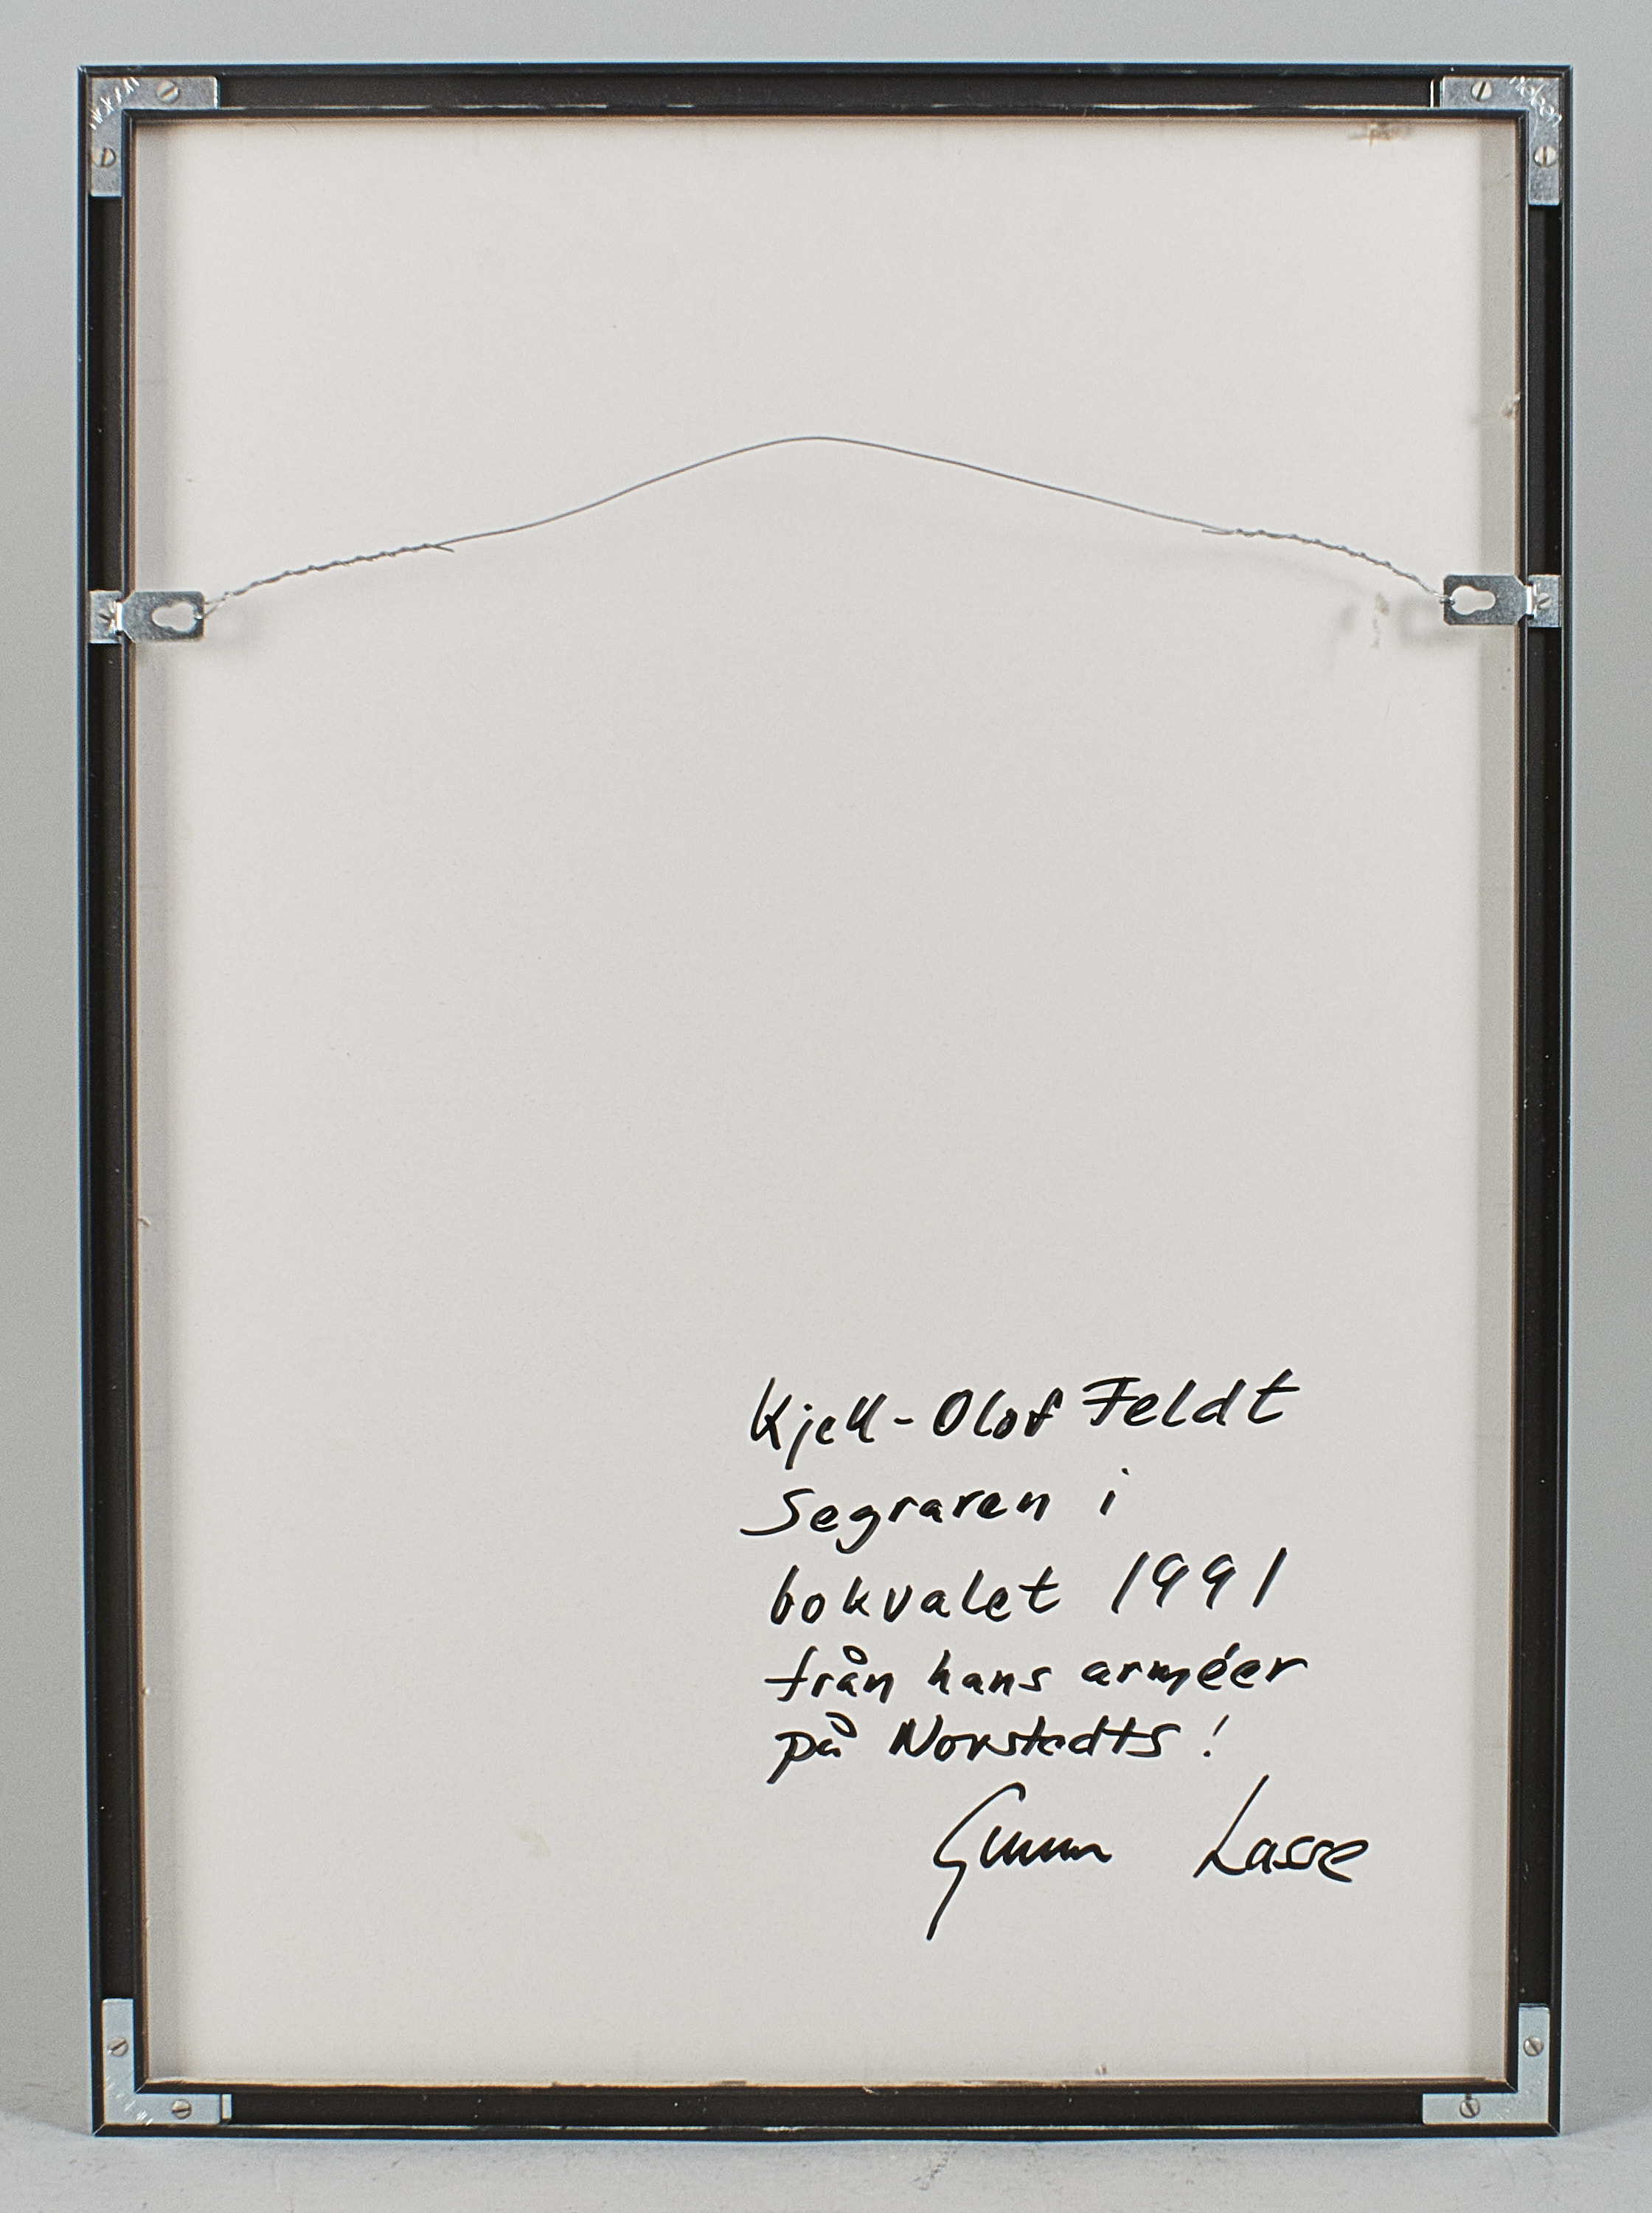 Kjell-Olof Feldt
Segraren i
bokvalet 1991
från hans arméer
på Norstedts!
Lasse